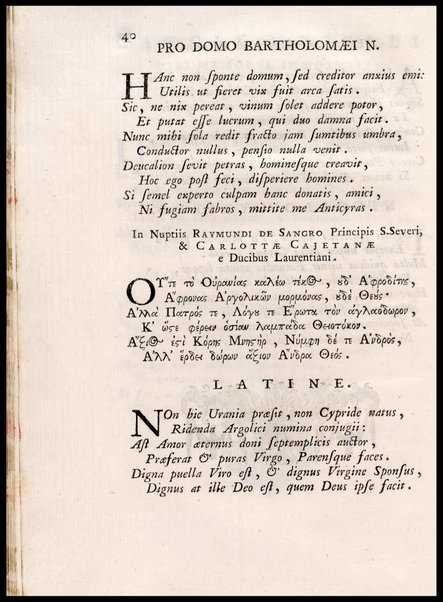 40
PRO DOMO BARTHOLOMÆI N.
HAnc non ſponte domum, ſed creditor anxius emi:
Utilis ut fieret vix fuit arca ſatis.
Sic, ne nix pereat, vinum ſolet addere potor,
Et putat eſſe lucrum, qui duo damna facit.
Nunc mihi ſola redit fracto jam ſumtibus umbra,
Conductor nullus, penſio nulla venit.
Deucalion ſevit petras, hominesque creavit,
Hoc ego poſt feci, diſperiere homines.
Si ſemel experto culpam hanc donatis, amici,
Ni fugiam fabros, mittite me Anticyras.
In Nuptiis RAYMUNDI DE SANGRO Principis S. Severi,
& CARLOTTÆ CAJETANÆ
e Ducibus Laurentiani.
ΟΥ῎τε τὸ Οὐρανίας καλέω τέκος, ἠδ' Ἀφροδίτης,
Ἄφρονας Ἀργολικῶν μορμόνας, ἠδὲ Θεύς·
Ἀλλὰ Πατρός τε, Λόγου τε Ἔρωτα τὸν ἀγλαόδωρον,
Κ' ὥςε φέρειν ὁσίαν λαμπάδα Θειοτόκον.
Ἄξιος ἐςὶ Κόρης Μνηςήρ, Νύμφη δέ τε Ἀνδρὸς,
Ἀλλ' ἔρδει δώρων ἄξιον Ἄνδρα Θεός.
LATINE.
NOn hic Urania præſit, non Cypride natus,
Ridenda Argolici numina conjugii:
Aſt Amor æternus doni ſeptemplicis auctor,
Præferat & puras Virgo, Parensque faces.
Digna puella Viro eſt, & dignus Virgine Sponſus,
Dignus at ille Deo eſt, quem Deus ipſe facit.